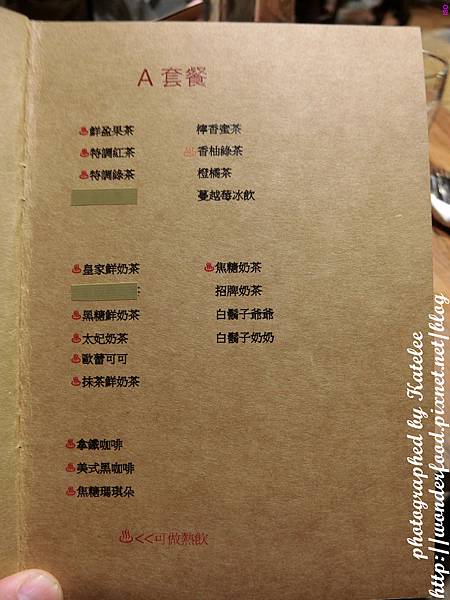 A 套餐
鮮盈果茶
特調紅茶
特調綠茶
檸香蜜茶
香柚綠茶
橙橘茶
蔓越莓冰飲
皇家鮮奶茶
黑糖鮮奶茶
太妃奶茶
歐蕾可可
抹茶鮮奶茶
焦糖奶茶
招牌奶茶
白鬍子爺爺
白鬍子奶奶
拿鐵咖啡
美式黑咖啡
焦糖瑪琪朵
<<可做熱飲
photographed by Katelee
http://wonderfood.pixnet.net/blog